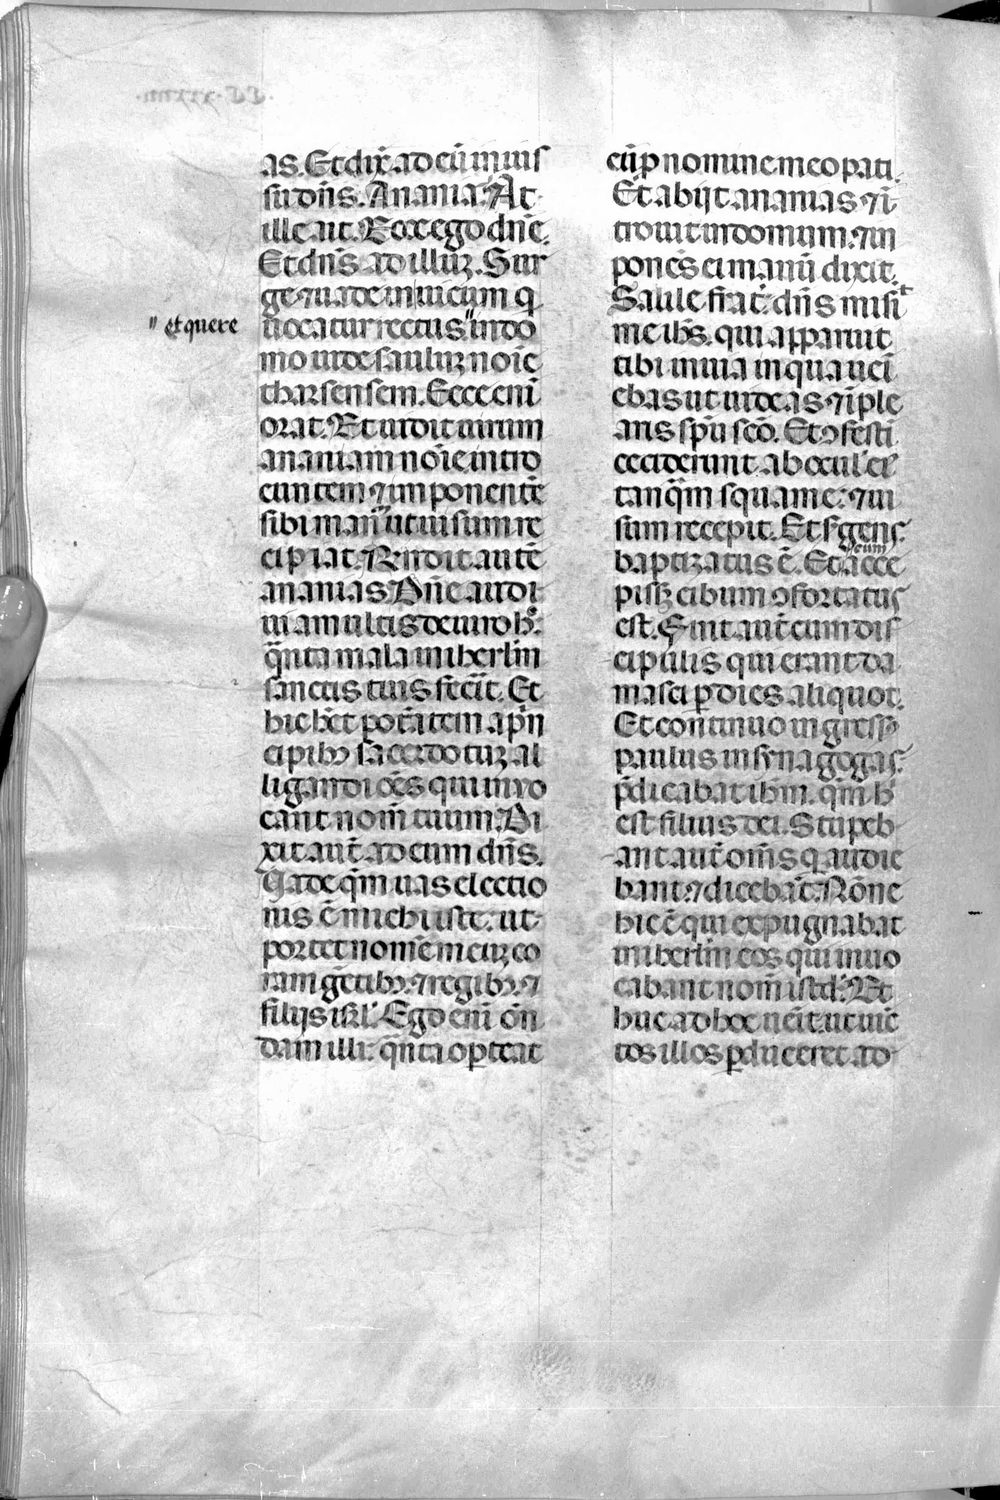 as. Et dix̄ ad eū in uis
su dn̄s. Anania. At
ille ait. Ecce ego dn̄e.
Et dn̄s ad illuꝫ. Sur
ge ⁊ uade in uicum q̄
" et quere
uocatur rectus " in do
mo iude sauluꝫ noīe
tharsensem. Ecce enī
orat. Et uidit uirum
ananiam noīe intro
euntem ⁊ imponentē
sibi man᷒ ut uisum re
cipiat. Rn̄dit autē
ananias Dn̄e audi
ui a multis de uiro h°.
q̄nta mala in ihrl̄m
sanctis tuis fecīt. Et
hic h̄et potātem a pn̄
cipibꝫ sacerdotuꝫ al
ligandi oēs qui inuo
cant nom̄ tuum. Di
xit aut̄ ad eum dn̄s.
Uade qm̄ uas electio
nis ē michi iste. ut
portet nomē meuꝫ co
ram gētibꝫ. ⁊ regibꝫ. ⁊
filijs isrl̄. Ego enī on̄
dam illi. q̄nta oꝑteat
eū ꝑ nomine meo pati.
Et abijt ananias ⁊ ī
troiuit in domum. ⁊ im
ponēs ei manū dixit.
Saule frat̄. dn̄s misit
me ih̄s. qui apparuit
tibi in uia in qua ueī
ebas ut uideas ⁊ īple
aris sp̄u scō. Et ꝯfesti
ceciderunt ab ocul̄ ei᷒
tanq̄m squame. ⁊ ui
sum recepit. Et s̄gens
baptizatus ē. Et cum acce
pisꝫ cibum ꝯfortatus
est. Fuit aut̄ cum dis
cipulis qui erant da
masci ꝑ dies aliquot.
Et continuo ingress᷒
paulus in synagogas.
p̄dicabat ih̄m. qm̄ h'
est filius dei. Stupeb
ant aut̄ om̄s q̄ audie
bant. ⁊ dicebāt. Nōne
hic ē qui expugnabat
in ihrl̄m eos qui inuo
cabant nom̄ istd̄. Et
huc ad hoc uēit. ut uīc
tos illos ꝑduceret ad